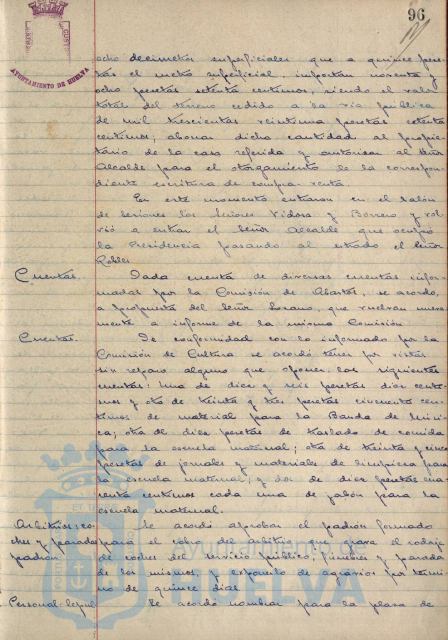 96
AYUNTAMIENTO DE HUELVA
ocho decímetros superficiales que a quince pese-
tas el metro superficial, importan noventa y
ocho pesetas setenta centimos, siendo el valor
total del terreno cedido a la via pública
de mil trescientas veintiuna pesetas setenta
centimos; abonar dicha cantidad al propie-
tario de la casa referida y autorizar al Señor
Alcalde para el otorgamiento de la correspon-
diente escritura de compra-venta.
En este momento entraron en el salón
de sesiones los Señores Vidosa y Borrero y vol-
vió a entrar el Señor Alcalde que ocupó
la Presidencia pasando al estrado el Señor
Robles
Cuentas. Dada cuenta de diversas cuentas infor-
madas por la Comisión de Abastos, se acordó,
a propuesta del Señor Lozano, que vuelvan nueva-
mente a informe de la misma Comisión.
Cuentas. De conformidad con lo informado por la
Comisión de Cultura se acordó tener por vistas
sin reparo alguno que oponer, las siguientes
cuentas: Una de diez y seis pesetas diez centi-
mos y otra de treinta y tres pesetas cincuenta cen-
timos de material para la Banda de Músi-
ca; otra de diez pesetas de traslado de comida
para la escuela maternal; otra de treinta y cinco
pesetas de jornales y materiales de limpieza para
la escuela maternal, y dos de diez pesetas cua-
renta centimos cada una de jabón para la
escuela maternal.
Arbitrios: co- Se acordó aprobar el padrón formado
ches y paradas para el cobro del arbitrio que grava el rodaje
padrón de coches del servicio público, fúnebres y parada
de los mismos y exponerlo de agravios por térmi-
no de quince días
Personal: Se acordó nombrar para la plaza de
Ayuntamiento de
HUELVA